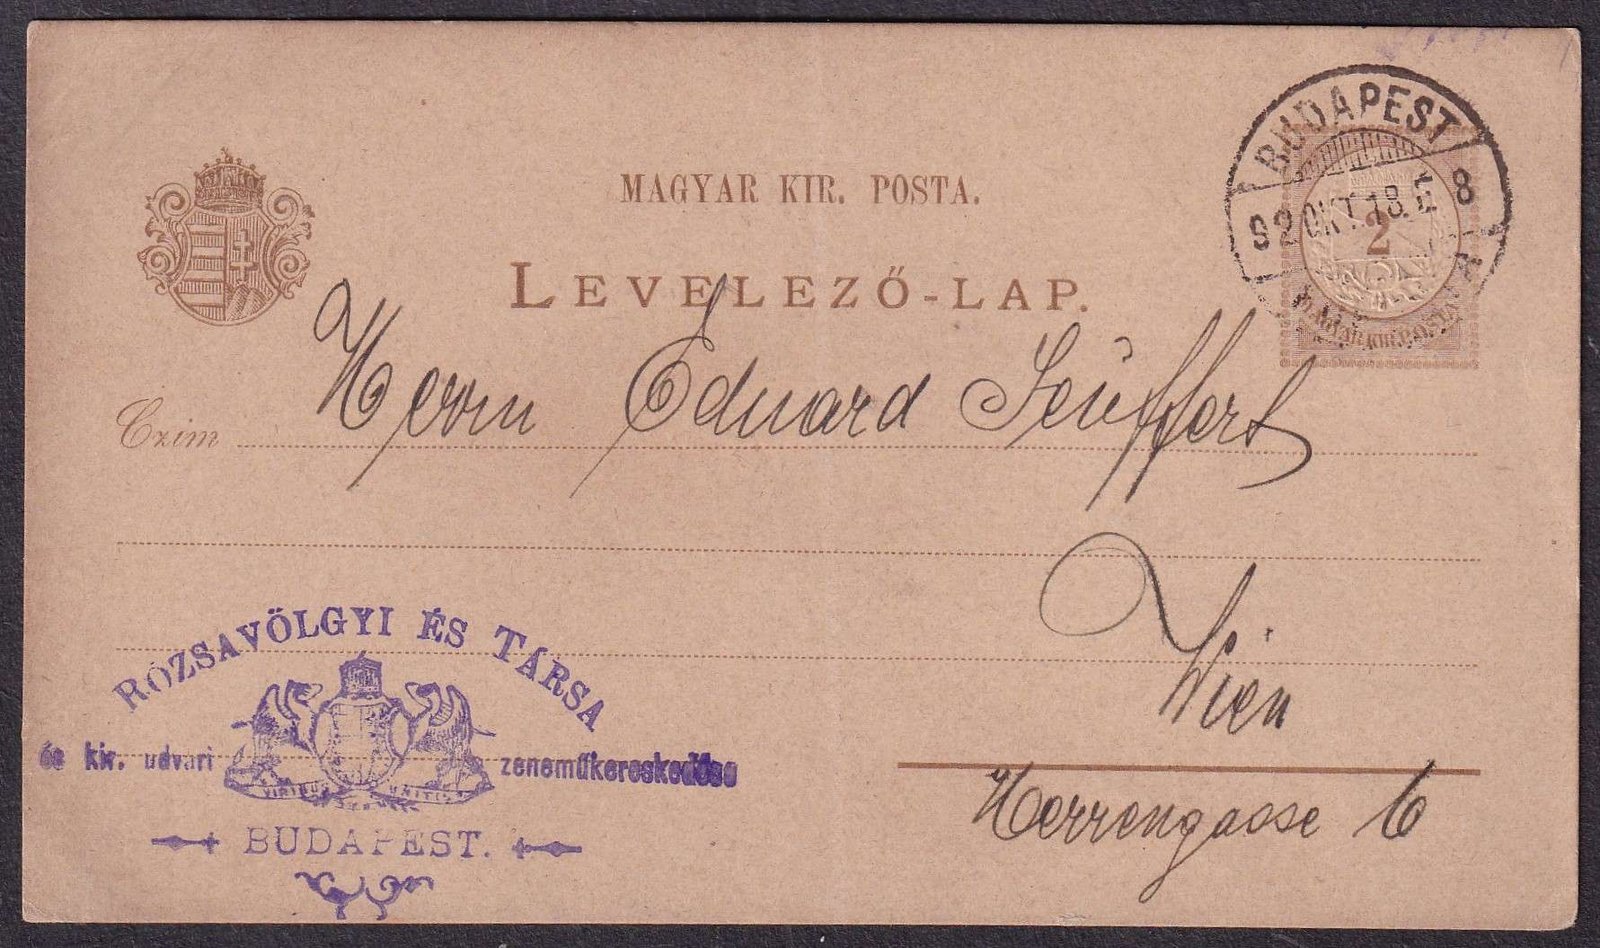 MAGYAR KIR. POSTA.
LEVELEZŐ-LAP.
BUDAPEST
92 OKT. 18. E 8
2
MAGYAR KIR. POSTA
Czim
Herrn Eduard Seüffert
Wien
Herrengasse 6
RÓZSAVÖLGYI ÉS TÁRSA
és kir. udvari zeneműkereskedése
VIRIBUS UNITIS
BUDAPEST.